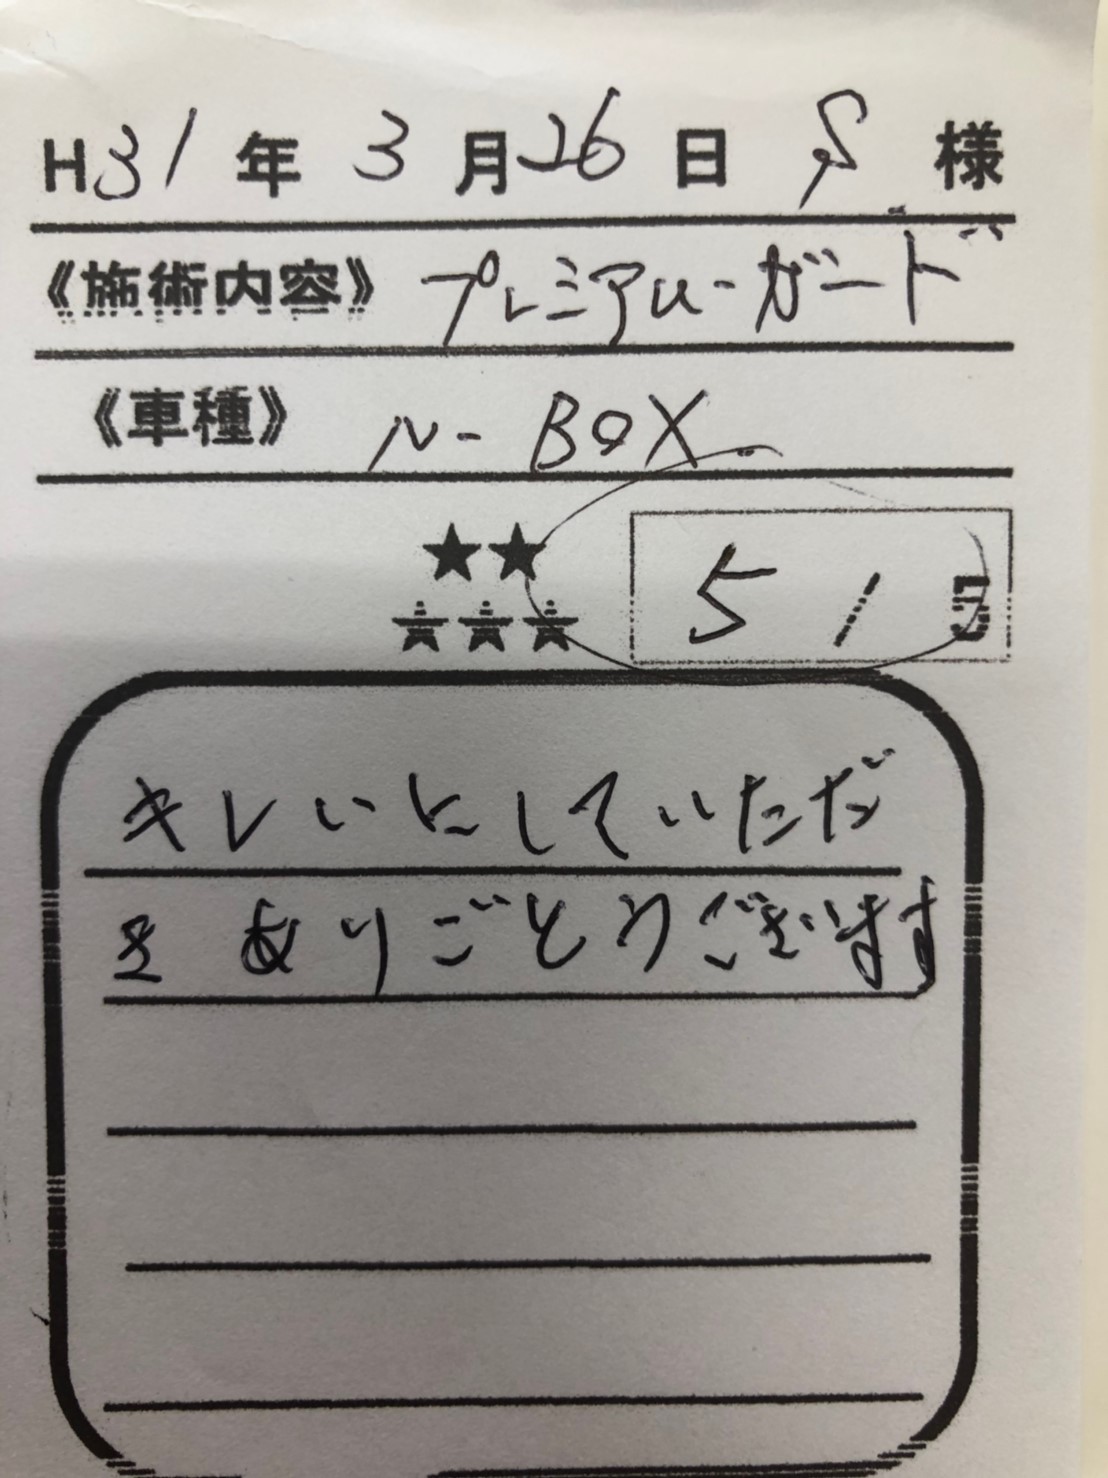 H31年 3月26日 S 様
《施術内容》 プレミアムーガード
《車種》 N-BOX
★★
★★★
5/5
キレいにしていただ
き ありごとうございます